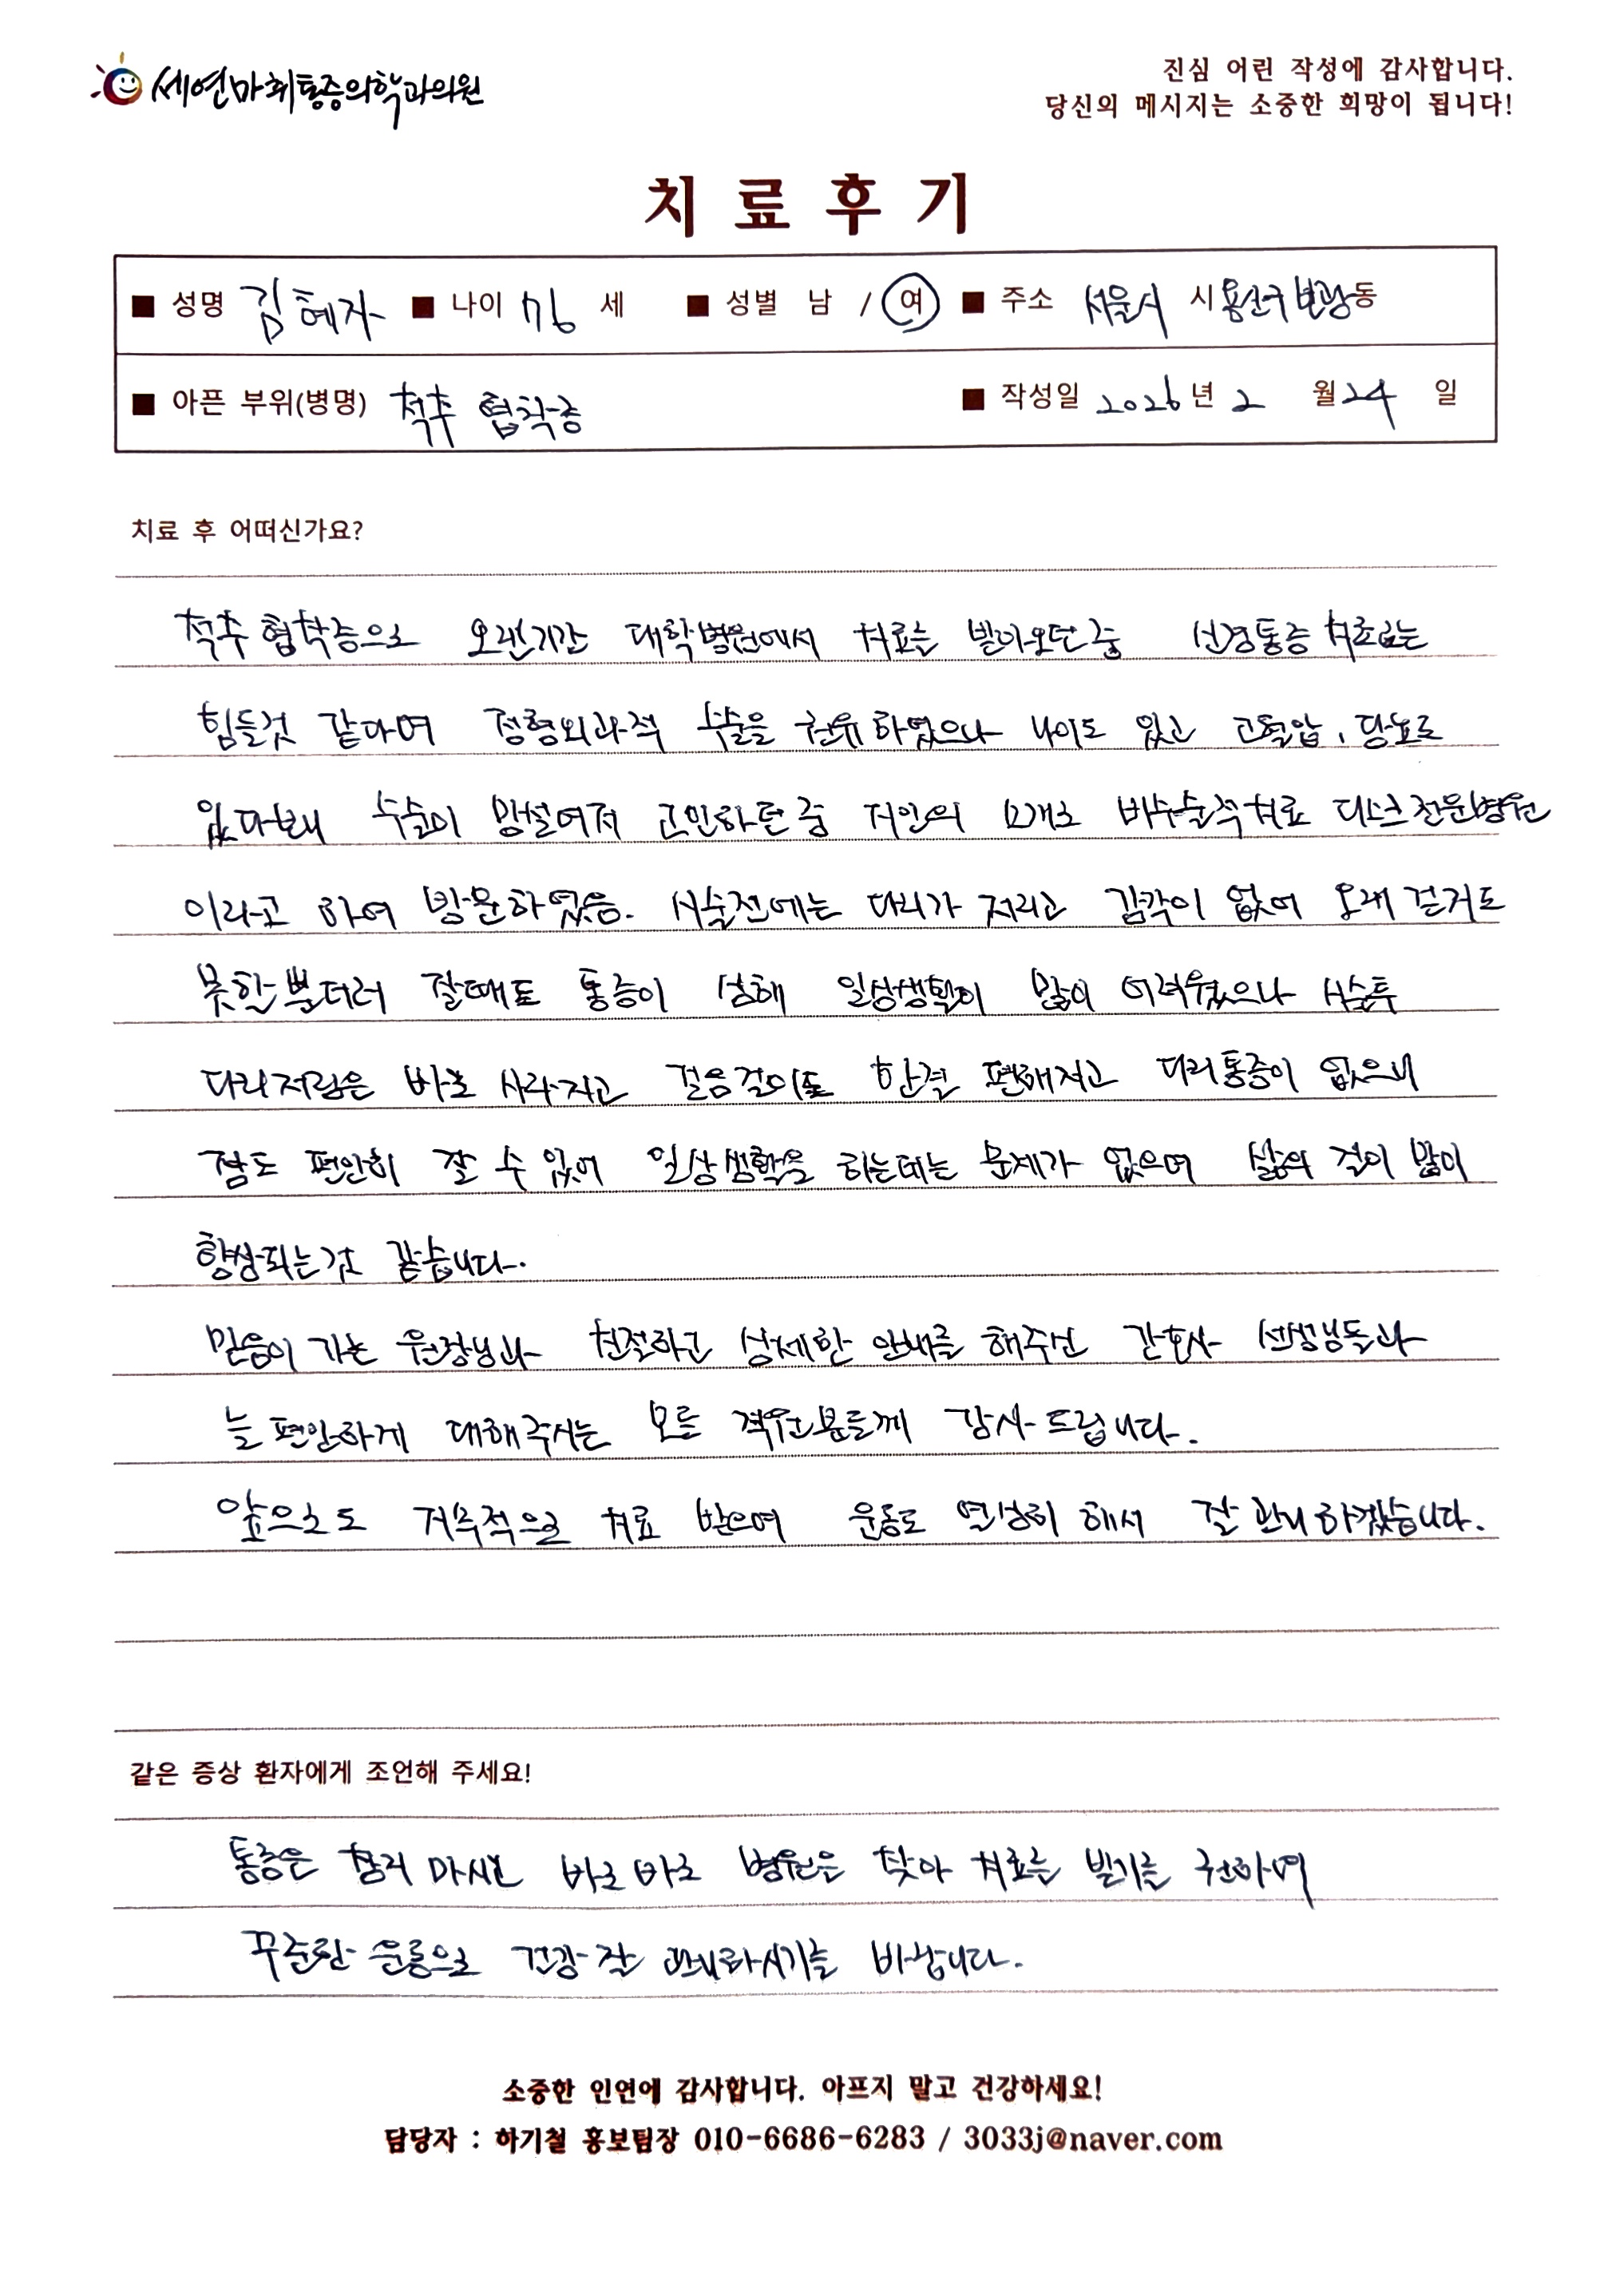 세연마취통증의학과의원
진심 어린 작성에 감사합니다.
당신의 메시지는 소중한 희망이 됩니다!
치료후기
■ 성명 김혜자 ■ 나이 76 세 ■ 성별 남 / 여 ■ 주소 서울시 시 용산구 보광동
■ 아픈 부위(병명) 척추 협착증 ■ 작성일 2026년 2 월 24 일
치료 후 어떠신가요?
척추 협착증으로 오랜기간 대학병원에서 치료를 받아오던 중 신경통증 치료로는
힘들것 같다며 정형외과적 수술을 권유 하였으나 나이도 있고 고혈압, 당뇨도
있다보니 수술이 망설여져 고민하던 중 지인의 소개로 비수술적치료 디스크 전문병원
이라고 하여 방문하였음. 시술전에는 다리가 저리고 감각이 없어 오래 걷지도
못할뿐더러 잘때도 통증이 심해 일상생활이 많이 어려웠으나 시술후
다리저림은 바로 사라지고 걸음걸이도 한결 편해지고 다리통증이 없으니
잠도 편안히 잘 수 있어 일상생활을 하는데는 문제가 없으며 삶의 질이 많이
향상되는것 같습니다.
믿음이 가는 원장님과 친절하고 상세한 안내를 해주신 간호사 선생님들과
늘 편안하게 대해주시는 모든 직원분들께 감사드립니다.
앞으로도 지속적으로 치료 받으며 운동도 열심히 해서 잘 관리하겠습니다.
같은 증상 환자에게 조언해 주세요!
통증은 참지 마시고 바로바로 병원을 찾아 치료를 받기를 권하며
꾸준한 운동으로 건강 잘 관리하시기를 바랍니다.
소중한 인연에 감사합니다. 아프지 말고 건강하세요!
담당자 : 하기철 홍보팀장 010-6686-6283 / 3033j@naver.com